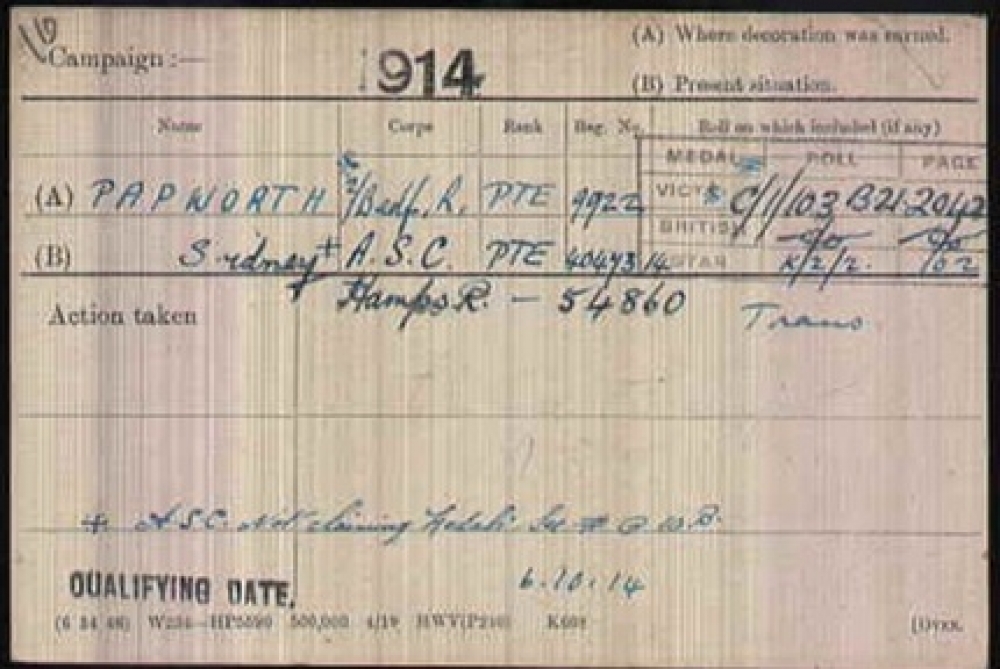 Campaign :— 1914 (A) Where decoration was earned.
(B) Present situation.
Name Corps Rank Reg. No. Roll on which included (if any)
MEDAL ROLL PAGE
(A) PAPWORTH 2/Bedf. R. PTE 9922 VICTY C/1/103 B21 2042
BRITISH do do
(B) Sidney + A.S.C. PTE 40473 14 STAR K/2/2. 102
Hamps R. — 54860 Trans
Action taken
+ A.S.C. not claiming Medals.
QUALIFYING DATE. 6.10.14
(6 34 46) W234—HP5590 500,000 4/19 HWV(P240) K608